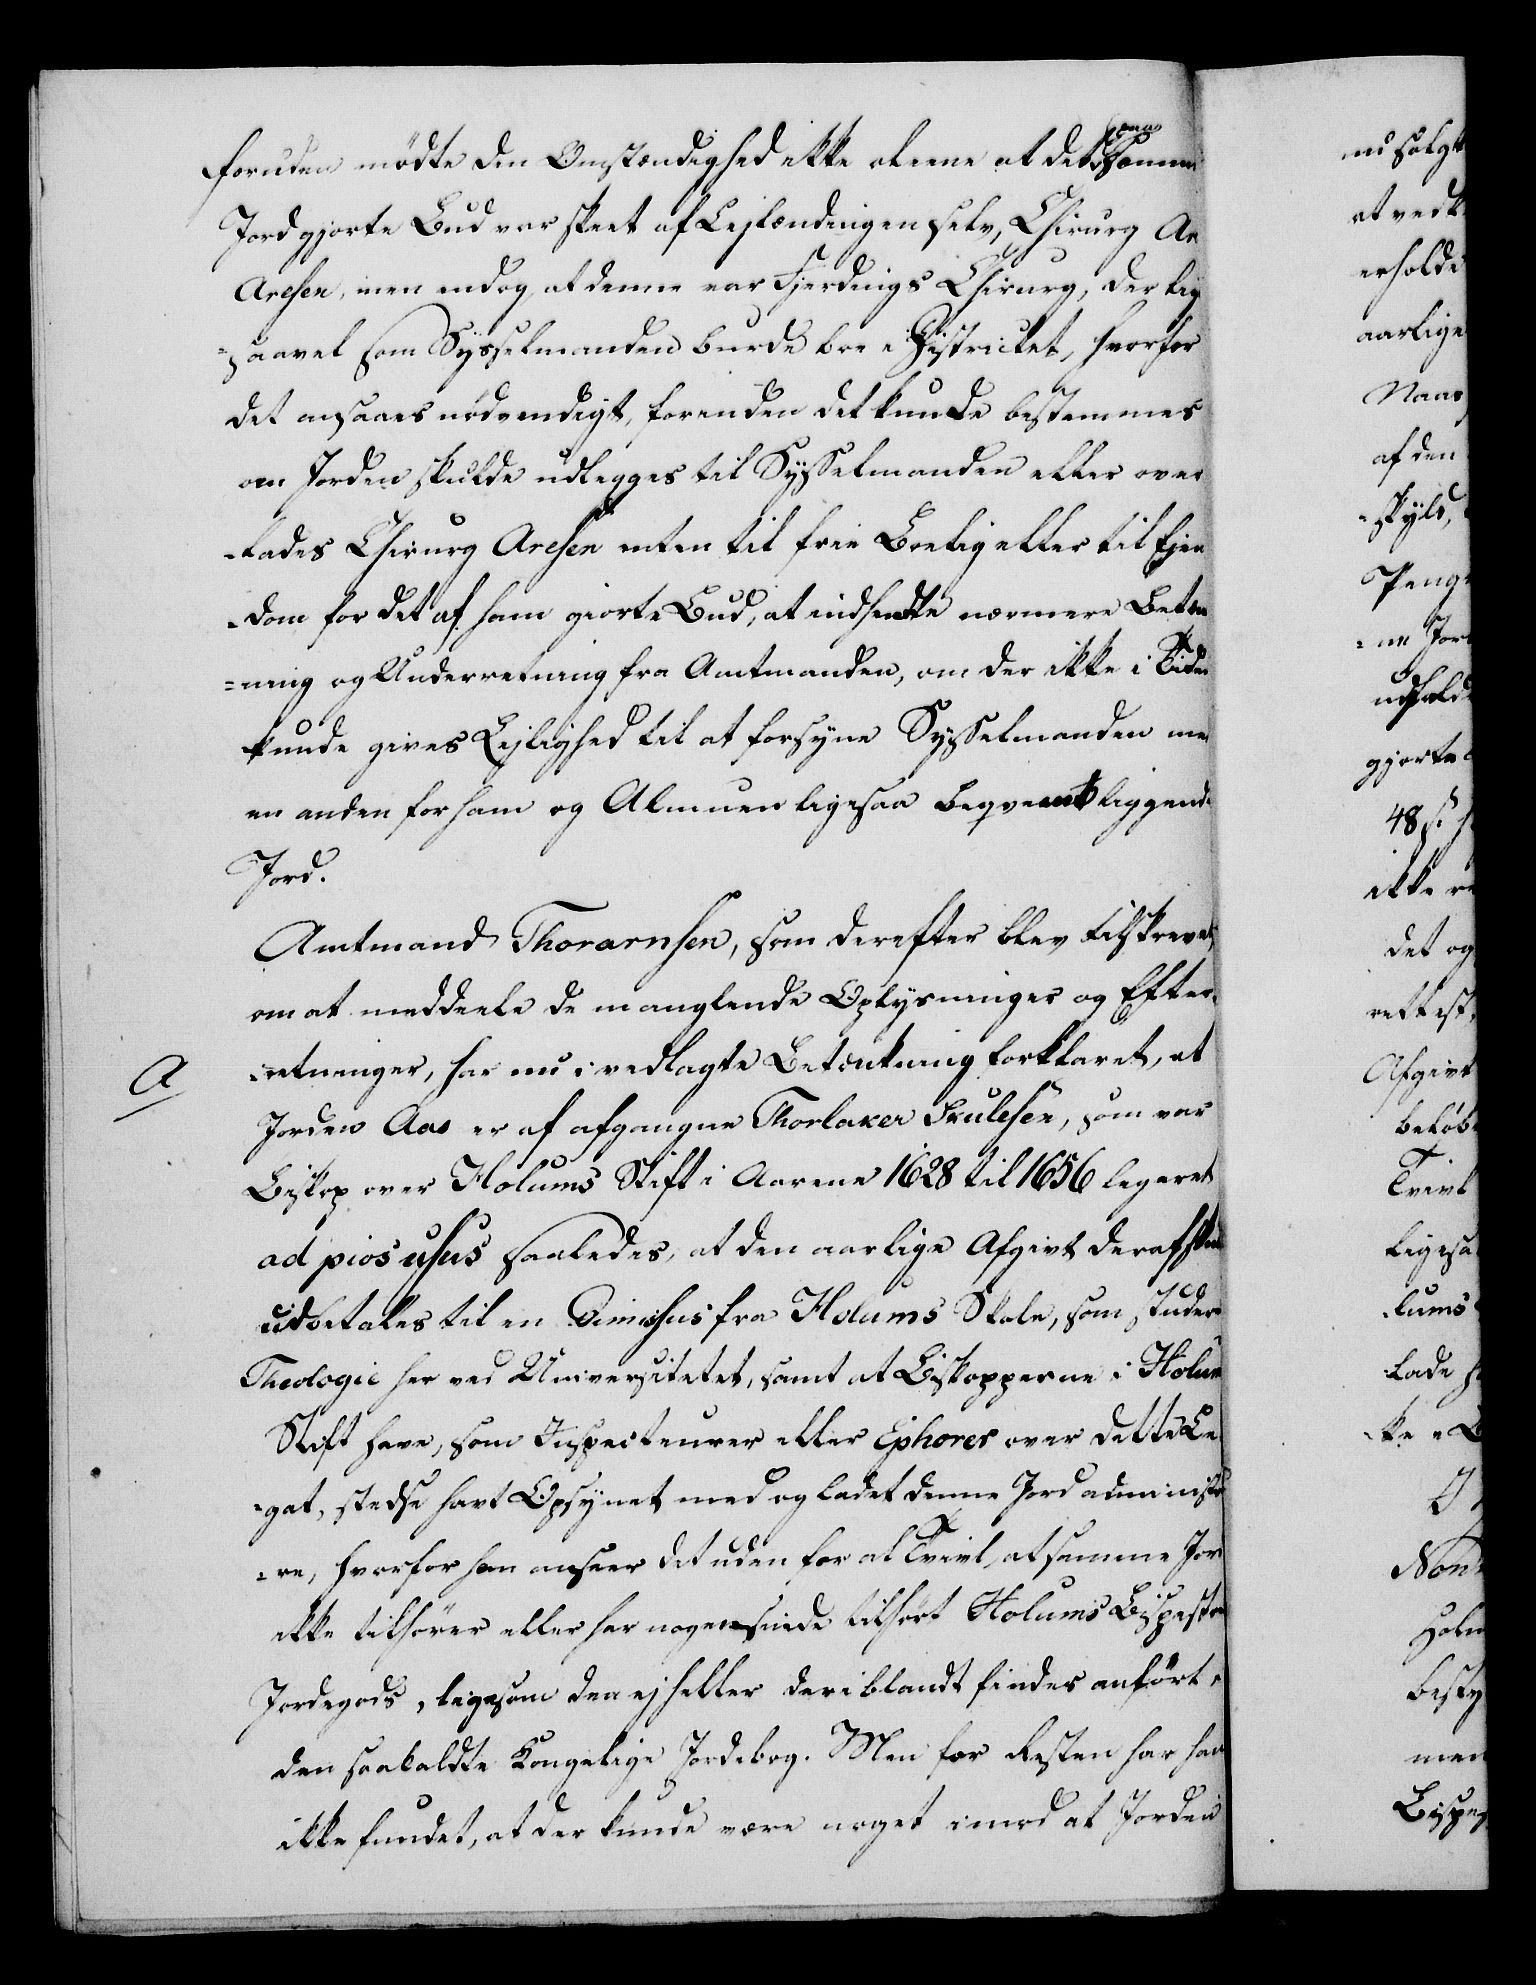 foruden mødte den Omstændighed ikke alene at det paa samme
Jord gjorte Bud var skeet af Lejlændingen selv, Chirurg Ar
Aresen, men endog, at denne var Fjerdings Chirurg, der lig
=saavel som Sysselmanden burde boe i Districtet, hvorfor
det ansaaes nødvendigt, forenden det kunde bestemmes
om Jorden skulde udlegges til Sysselmanden eller over
=lades Chirurg Aresen enten til frie Boelig eller til Ejen
=dom for det af ham giorte Bud, at indhente nærmere Betæn
=ning og Underretning fra Amtmanden, om der ikke i Tiden
kunde gives Lejlighed til at forsyne Sysselmanden me
en anden for ham og Almuen ligesaa beqvemt liggende
Jord.
Amtmand Thorarnsen, som derefter blev tilskrevet
om at meddeele de manglende Oplysninger og Efter=
=retninger, har nu i vedlagte Betænkning forklaret, at
A
Jorden Aas er af afgangne Thorlaker Skulesen, som var
Biskop over Holums Stift i Aarene 1628 til 1656 legeret
ad pios usus saaledes, at den aarlige Afgivt deraf skul
udbetales til en Dimissus fra Holums Skole, som studere
Theologie her ved Universitetet, samt at Biskopperne i Holum
Stift have, som Inspecteurer eller Ephorer over dette Le
=gat, stedse havt Opsynet med og ladet denne Jord administre
=re, hvorfor han anseer det uden for al Tvivl, at samme Jor
ikke tilhører eller har nogensinde tilhørt Holums Bispestoe
Jordegods, ligesom den ej heller deriblandt findes anført i
den saakaldte Kongelige Jordebog. Men for Resten har han
ikke fundet, at der kunde være noget imod at Jorden
nu solgt
at ved
erholde
aarlige
Naar
af den
=skyld,
Penge
=ne Jor
udfald
gjorte
48 s. h
ikke
det og
rettest,
Afgivt
beløb
Tvivl
ligesaa
=lums
lade h
=ke
Nor
Holu
besty
men
Bispe